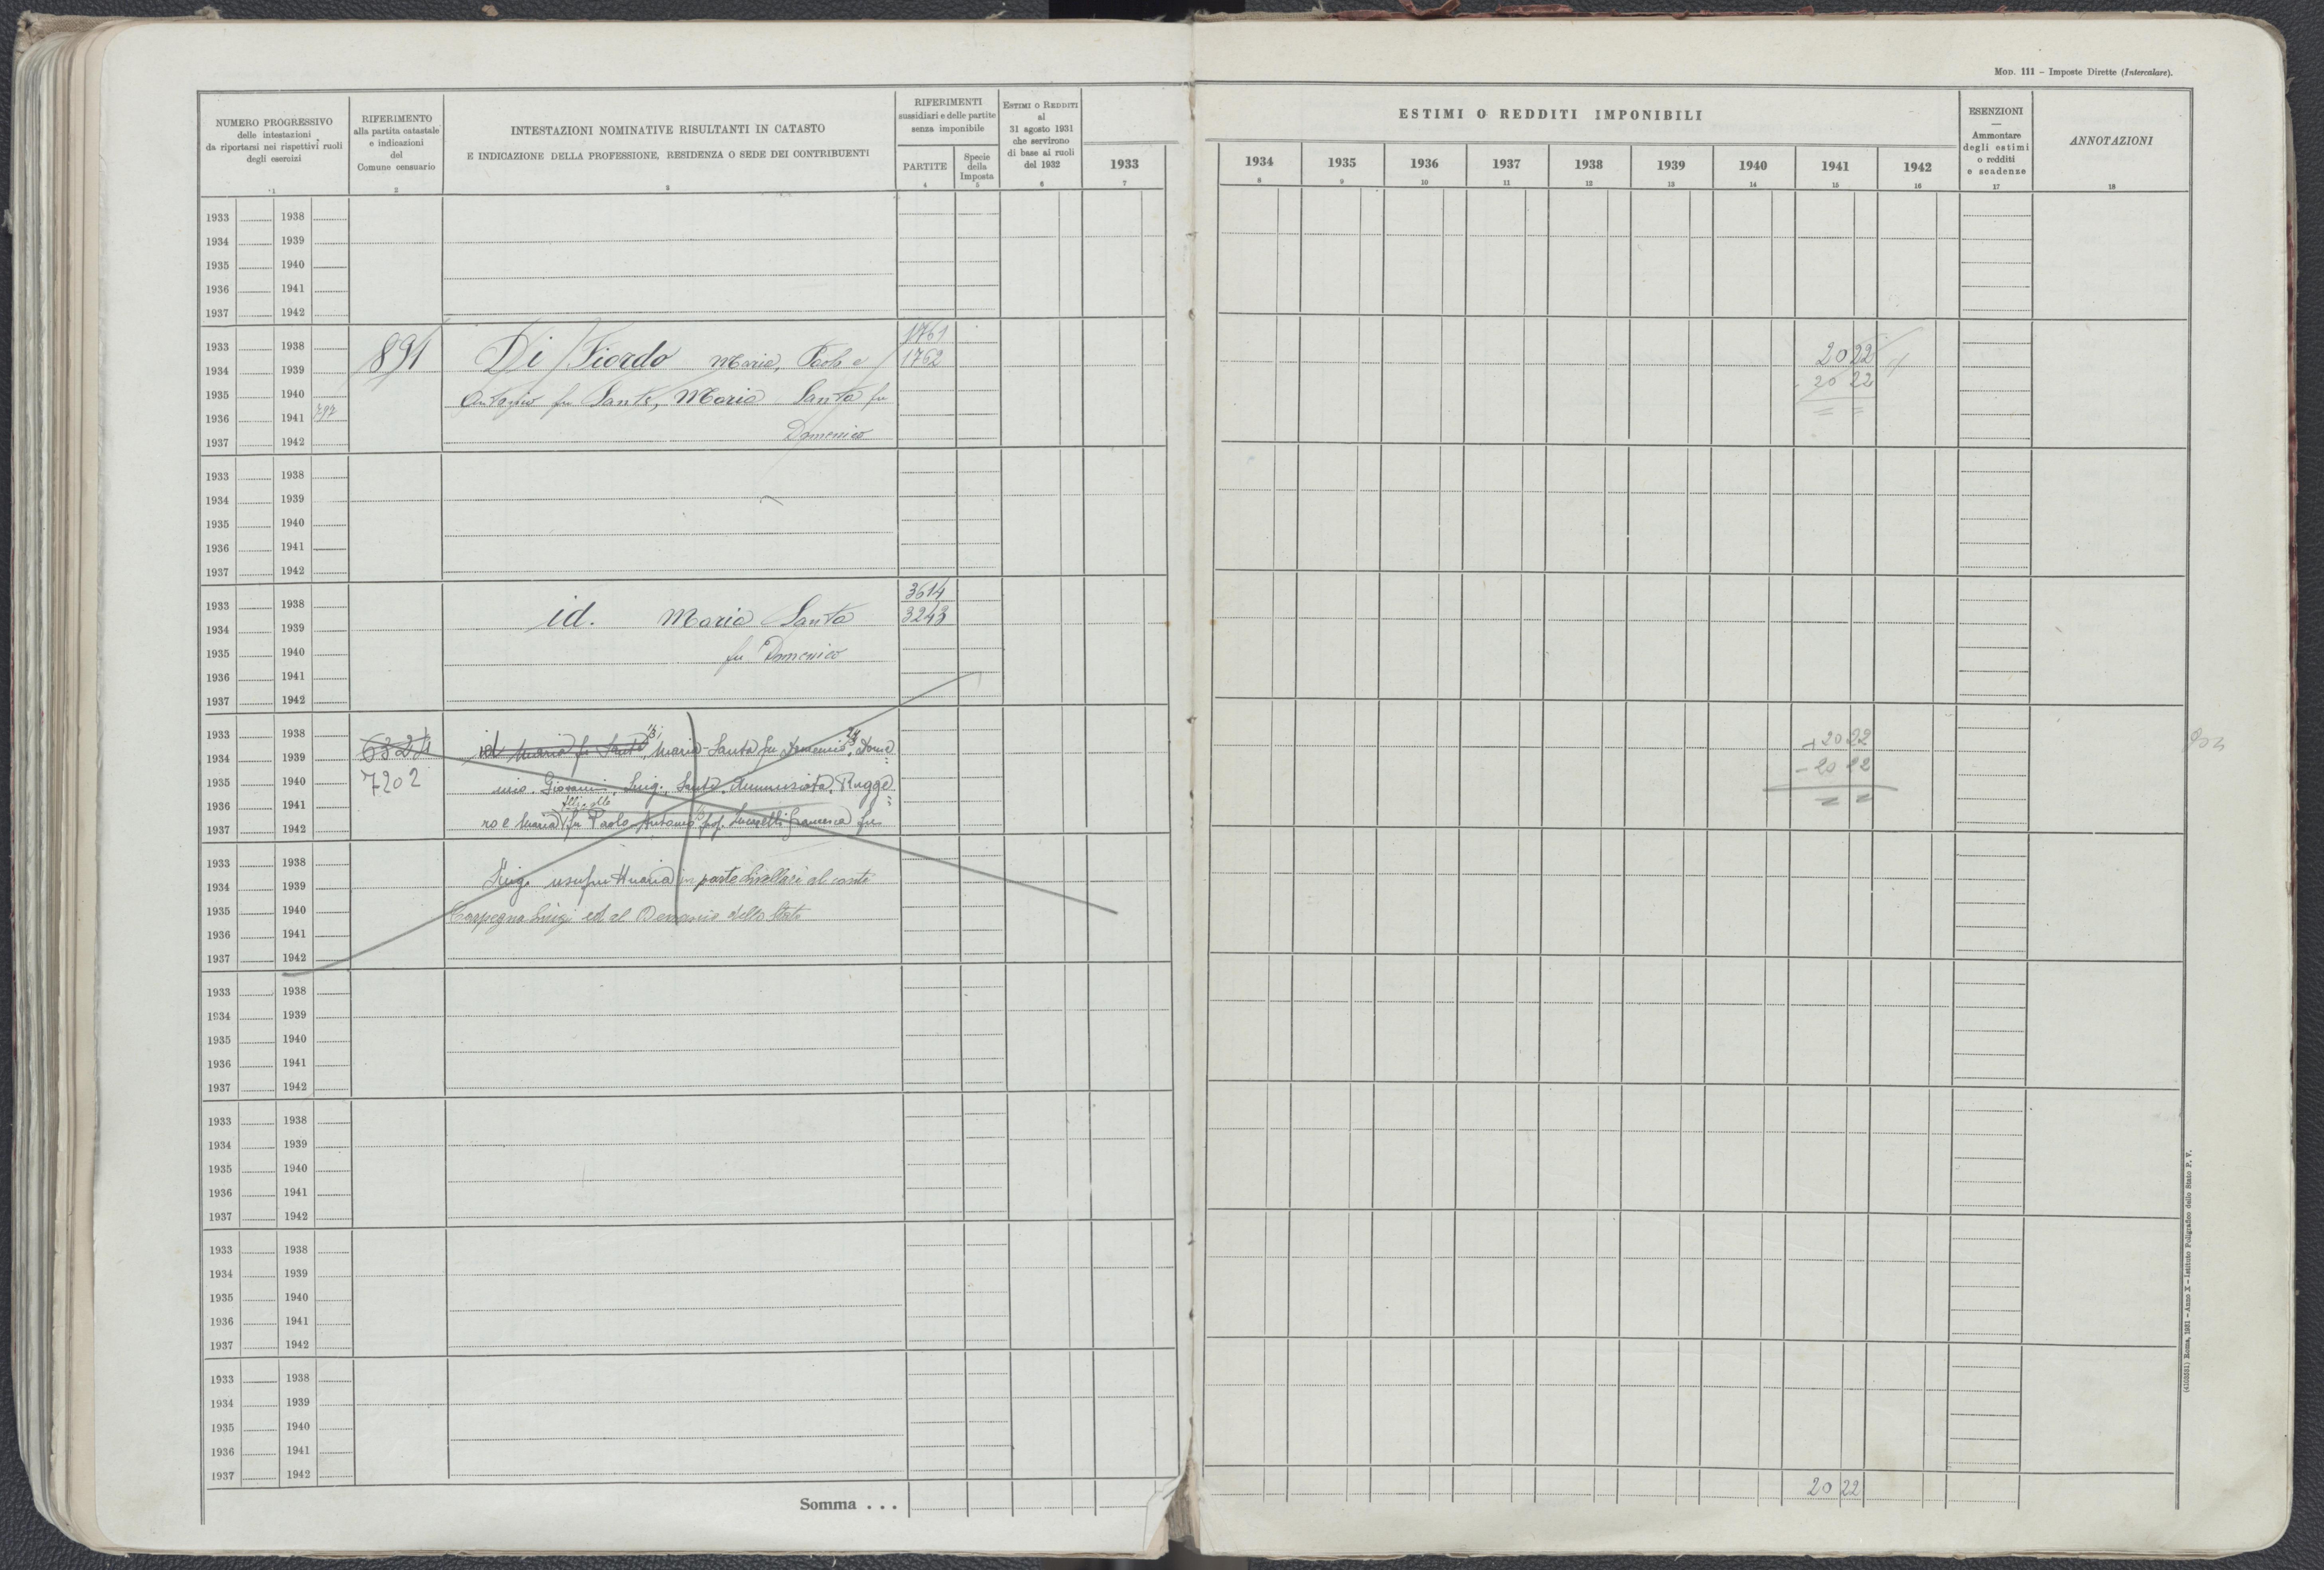 MOD. 111 – Imposte Dirette (Intercalare).
NUMERO PROGRESSIVO
delle intestazioni
da riportarsi nei rispettivi ruoli
degli esercizi
1
RIFERIMENTO
alla partita catastale
e indicazioni
del
Comune censuario
2
INTESTAZIONI NOMINATIVE RISULTANTI IN CATASTO
E INDICAZIONE DELLA PROFESSIONE, RESIDENZA O SEDE DEI CONTRIBUENTI
3
RIFERIMENTI
sussidiari e delle partite
senza imponibile
PARTITE
4
Specie
della
Imposta
5
ESTIMI O REDDITI
al
31 agosto 1931
che servirono
di base ai ruoli
del 1932
6
ESTIMI O REDDITI IMPONIBILI
1933 1934 1935 1936 1937 1938 1939 1940 1941 1942
7 8 9 10 11 12 13 14 15 16
ESENZIONI
—
Ammontare
degli estimi
o redditi
e scadenze
17
ANNOTAZIONI
18
1933 1938
1934 1939
1935 1940
1936 1941
1937 1942
1761
1933 1938
891 Di Fiordo Maria, Paolo e 1762 20 22
1934 1939
- 20 22
1935 1940 Antonio fu Sante, Maria Santa fu
1936 1941 797 = =
1937 1942 Domenico
1933 1938
1934 1939
1935 1940
1936 1941
1937 1942
3614
1933 1938
id. Maria Santa 3243
1934 1939
1935 1940 fu Domenico
1936 1941
1937 1942
1933 1938 + 20 22
6324 id Maria fu Sante, Maria Santa fu Domenico, Dome
1934 1939 - 20 22
7202
1935 1940 nico. Giovanni, Luigi, Sante, Annunziata, Rugge
1936 1941 = =
1937 1942 ro e Maria fu Paolo Antonio prop. Lucarelli Francesca fu
1933 1938
1934 1939 Luigi usufruttuaria in parte livellari al conte
1935 1940 Carpegna Luigi ed al Demanio dello Stato
1936 1941
1937 1942
1933 1938
1934 1939
1935 1940
1936 1941
1937 1942
1933 1938
1934 1939
1935 1940
1936 1941
1937 1942
1933 1938
1934 1939
1935 1940
1936 1941
1937 1942
1933 1938
1934 1939
1935 1940
1936 1941
1937 1942
Somma . . . 20 22
Roma, 1931 – Anno X – Istituto Poligrafico dello Stato P. V.